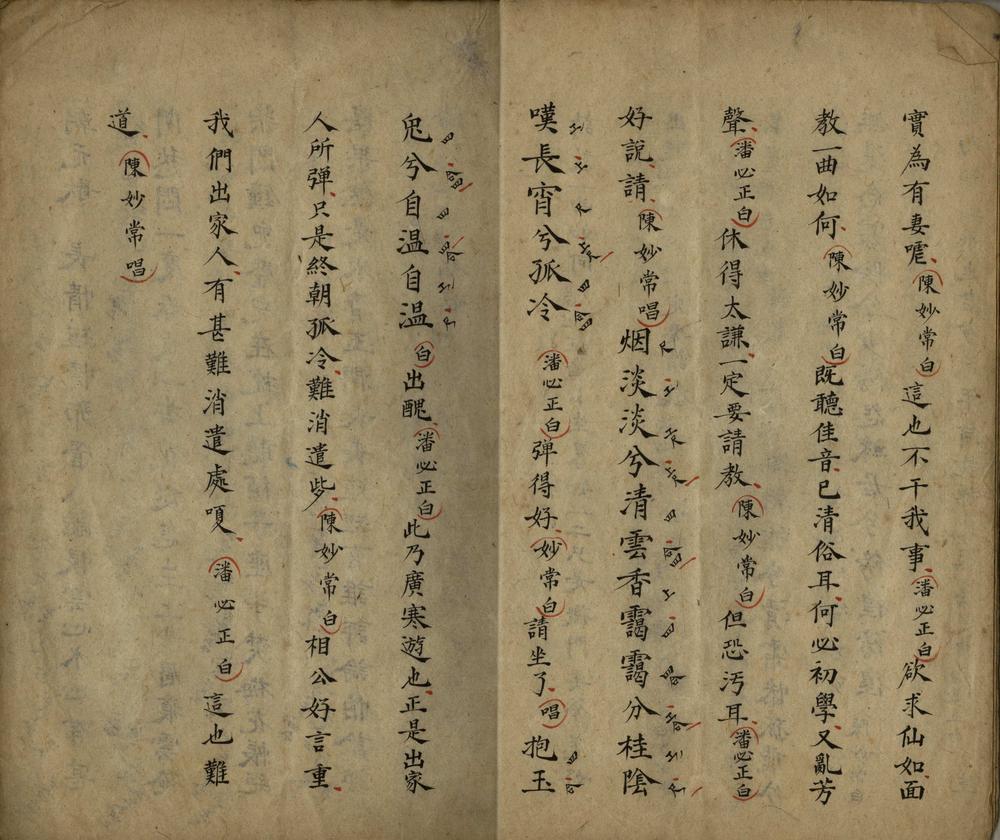 實為有妻嘘陳妙常白這也不干我事潘必正白欲求仙如面
教一曲如何陳妙常白既聽佳音已清俗耳何必初學又亂芳
聲潘必正白休得太謙一定要請教陳妙常白但恐汚耳潘必正白
好說請陳妙常唱烟淡淡兮清雲香靄靄兮桂陰
嘆長宵兮孤冷潘必正白弹得好妙常白請坐了唱抱玉
兎兮自温自温白出醜潘必正白此乃廣寒遊也正是出家
人所弹只是終朝孤冷難消遣些陳妙常白相公好言重
我們出家人有甚難消遣處嗄潘必正白這也難
道陳妙常唱